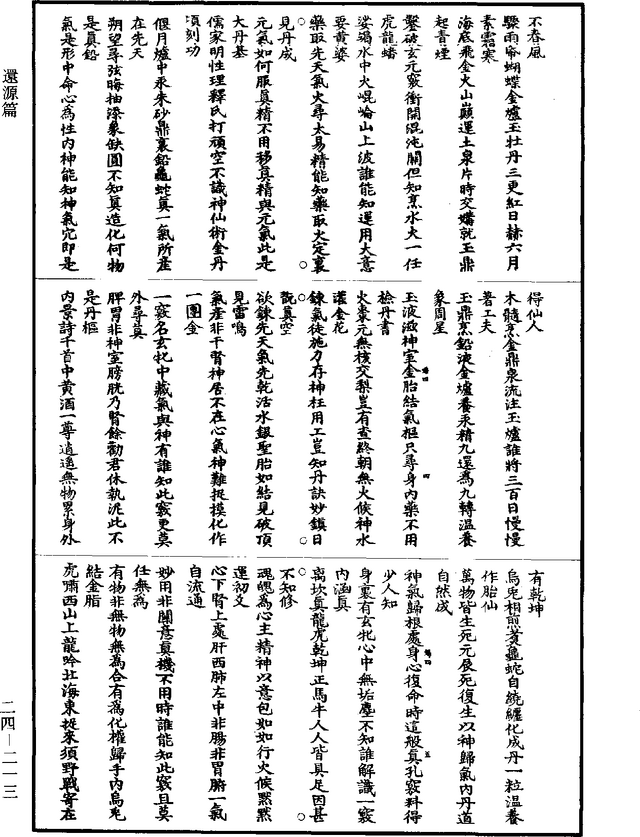 還源篇
不春風
驟雨帝蝴蝶金爐玉牡丹三更紅日赫六月
素霜寒
海底飛金火山巔運土泉片時交媾就玉鼎
起青煙
鑿破玄元竅衝開混沌關但知烹水火一任
虎龍蟠
娑竭水中火崐崘山上波誰能知運用大意
要黃婆
藥取先天氣火尋太易精能知藥取火定裏
見丹成
元氣如何服真精不用移真精與元氣此是
大丹基
儒家明性理釋氏打頑空不識神仙術金丹
頃刻功
偃月爐中汞朱砂鼎裏鉛龜蛇真一氣所產
在先天
朔望尋弦晦抽添象缺圓不知真造化何物
是真鉛
氣是形中命心為性內神能知神氣穴即是
得仙人
木髓烹金鼎泉流注玉爐誰將三百日慢慢
著工夫
玉鼎烹鉛液金爐養汞精九還為九轉溫養
象周星
玉液滋神室金胎結氣樞只尋身內藥不用
檢丹書
火棗元無核交梨豈有查終朝無火候神水
灌金花
鍊氣徒施力存神枉用工豈知丹訣妙鎮日
翫真空
欲鍊先天氣先乾活水銀聖胎如結見破頂
見雷鳴
氣產非干腎神居不在心氣神難捉摸化作
一團金
一竅名玄牝中藏氣與神有誰知此竅更莫
外尋真
脾胃非神室膀胱乃腎餘勸君休執泥此不
是丹樞
內景詩千首中黃酒一尊逍遙無物累身外
有乾坤
烏兔相煎煮龜蛇自繞纏化成丹一粒溫養
作胎仙
萬物皆生死元辰死復生以神歸氣內丹道
自然成
神氣歸根處身心復命時這般真孔竅料得
少人知
身裏有玄牝心中無垢塵不知誰解識一竅
內涵真
離坎真龍虎乾坤正馬牛人人皆具足因甚
不知修
魂魄為心主精神以意包如如行火候默默
運初爻
心下腎上處肝西肺左中非腸非胃腑一氣
自流通
妙用非關意真機不用時誰能知此竅且莫
任無為
有物非無物無為合有為化權歸手內烏兔
結金脂
虎嘯西山上龍吟北海東捉來須野戰寄在
二四—二一三